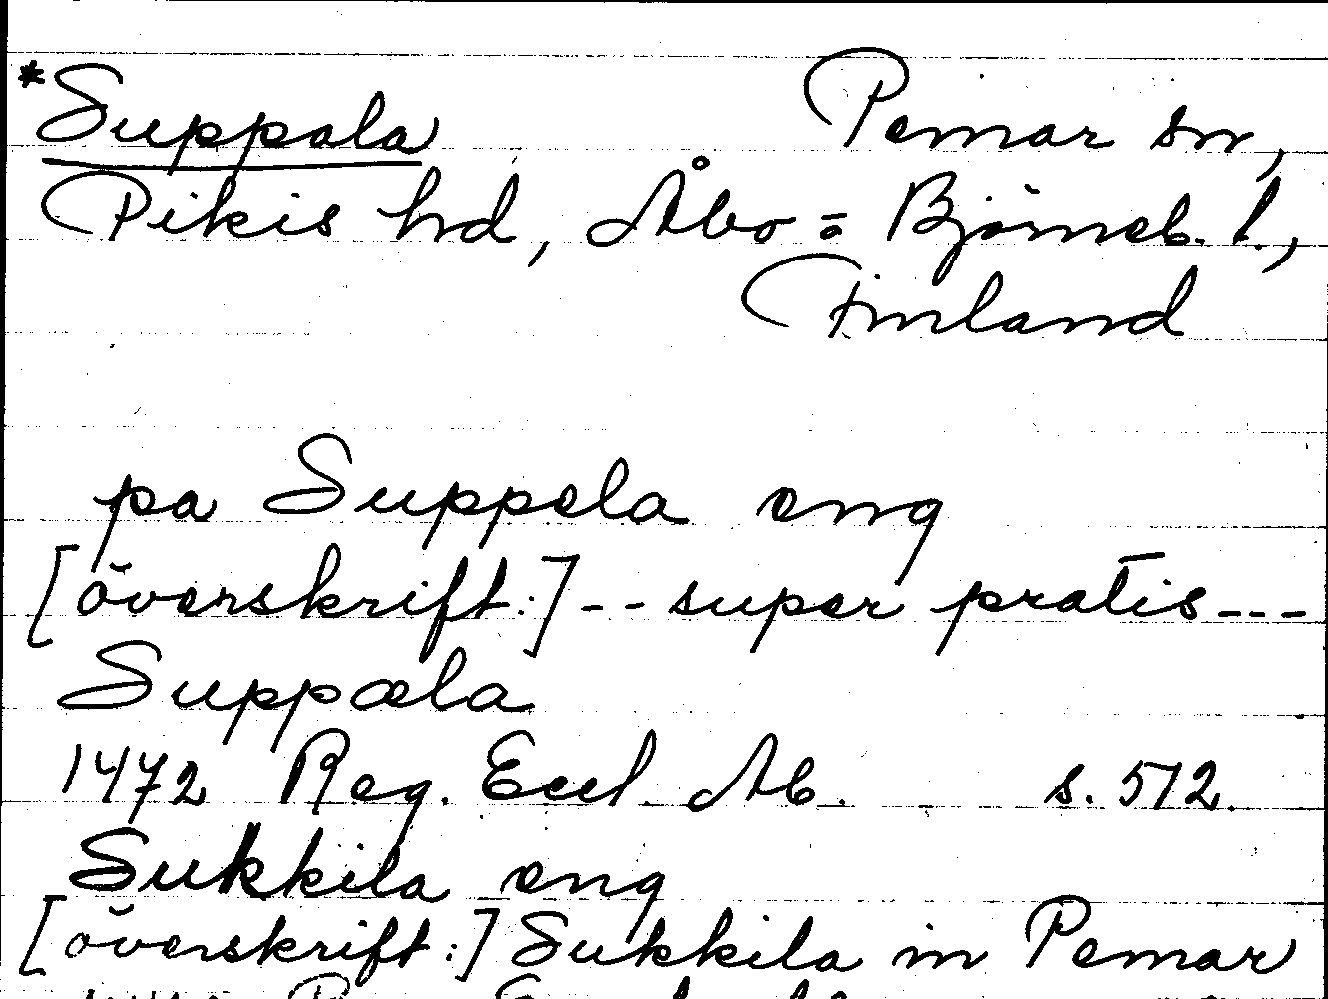 *Suppala Pemar sn,
Pikis hd, Åbo = Björneb. l.,
Finland
pa Suppela eng
[överskrift:] -- super pratis ---
Suppæla
1472 Reg. Eccl. Ab. s. 512.
Sukkila eng
[överskrift:] Sukkila in Pemar